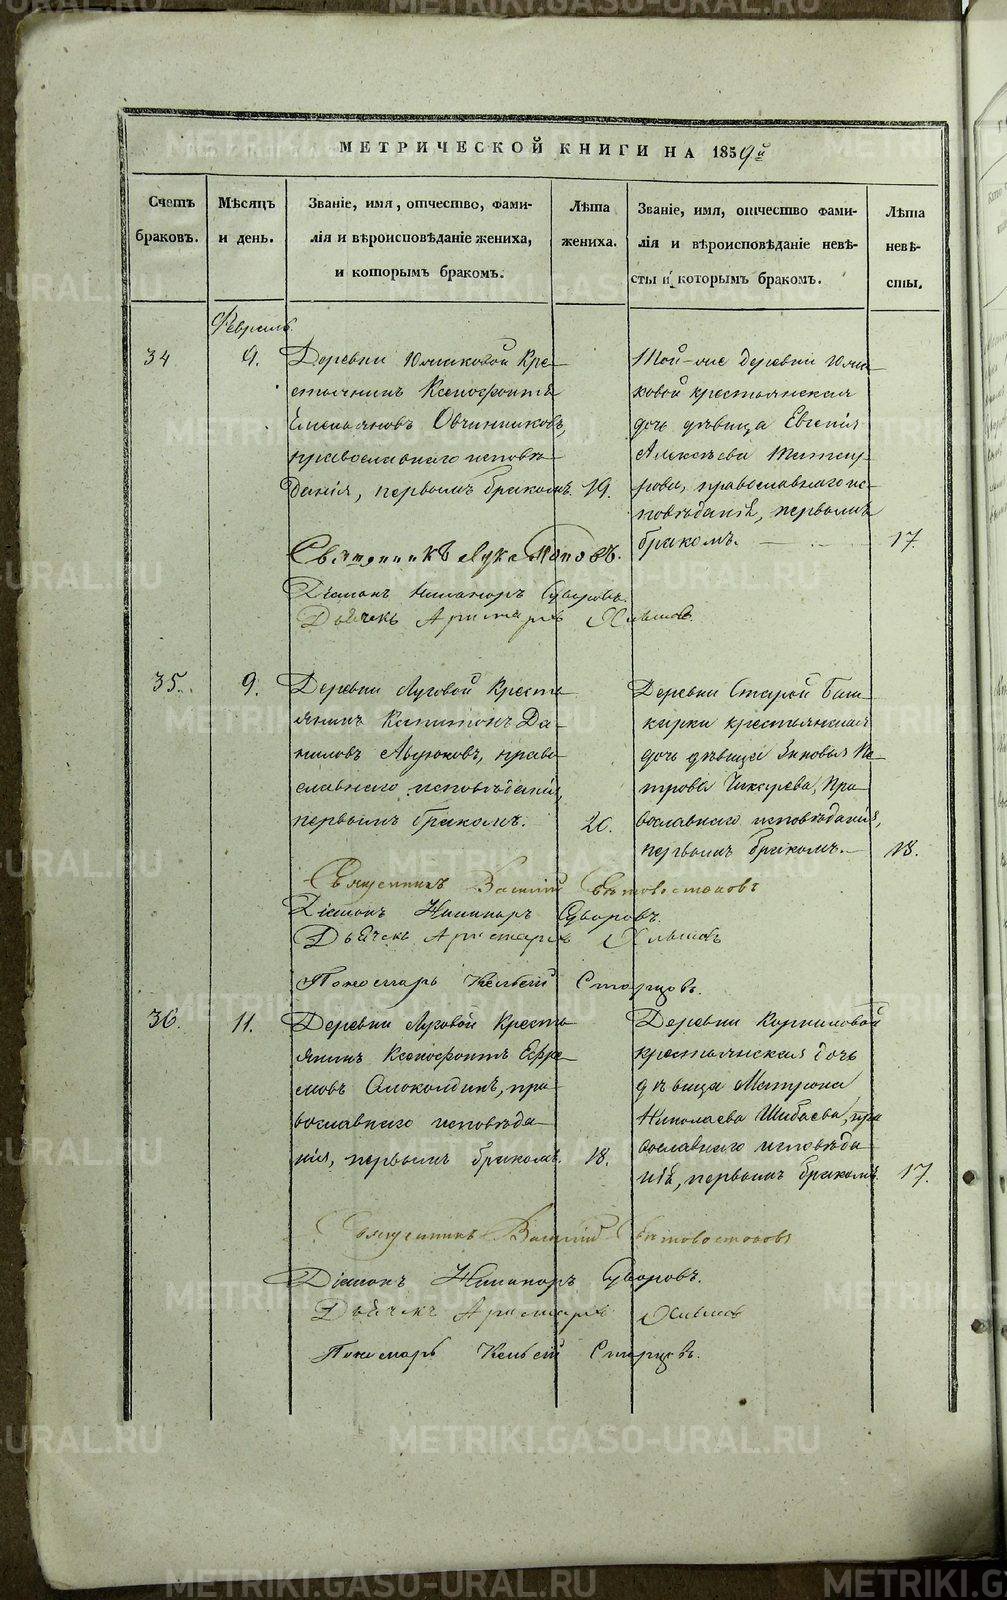 МЕТРИЧЕСКОЙ КНИГИ НА 1859й
Счетъ браковъ.
Мѣсяцъ и день.
Званіе, имя, отчество, фами-
лія и вѣроисповѣданіе жениха,
и которымъ бракомъ.
Лѣта
жениха.
Званіе, имя, отчество фами-
лія и вѣроисповѣданіе невѣ-
сты и которымъ бракомъ.
Лѣта
невѣ-
сты.
Февраль
34
9.
Деревни Юшковой Кре-
стьянинъ Ксенофонтъ
Емельяновъ Овчинниковъ,
православнаго исповѣ-
данія, первымъ бракомъ.
19.
Той-же деревни Юш-
ковой крестьянская
дочь дѣвица Евгенія
Алексѣева
православнаго ис-
повѣданія, первымъ
бракомъ.
17.
Священникъ Лука Поповъ.
Діаконъ Никаноръ Суворовъ.
Дьячекъ Аристархъ
35.
9.
Деревни Луговой Кресть-
янинъ Капитонъ Да-
ниловъ Авдюковъ, право-
славнаго исповѣданія,
первымъ бракомъ.
20.
Деревни Старой Баш-
кирки крестьянская
дочь дѣвица Зиновья Пе-
трова Чикарева, пра-
вославнаго исповѣданія,
первымъ бракомъ.
18.
Священникъ Василій Свѣтовостоковъ
Діаконъ Никаноръ Суворовъ.
Дьячекъ Аристархъ
Пономарь Старцовъ.
36.
11.
Деревни Луговой Кресть-
янинъ Ксенофонтъ Ефре-
мовъ пра-
вославнаго исповѣда-
нія, первымъ бракомъ.
18.
Деревни Корниловой
крестьянская дочь
дѣвица Матрона
Николаева Шибаева, пра-
вославнаго исповѣда-
нія, первымъ бракомъ.
17.
Священникъ Василій Свѣтовостоковъ
Діаконъ Никаноръ Суворовъ.
Дьячекъ Аристархъ
Пономарь Старцовъ.
METRIKI.GASO-URAL.RU